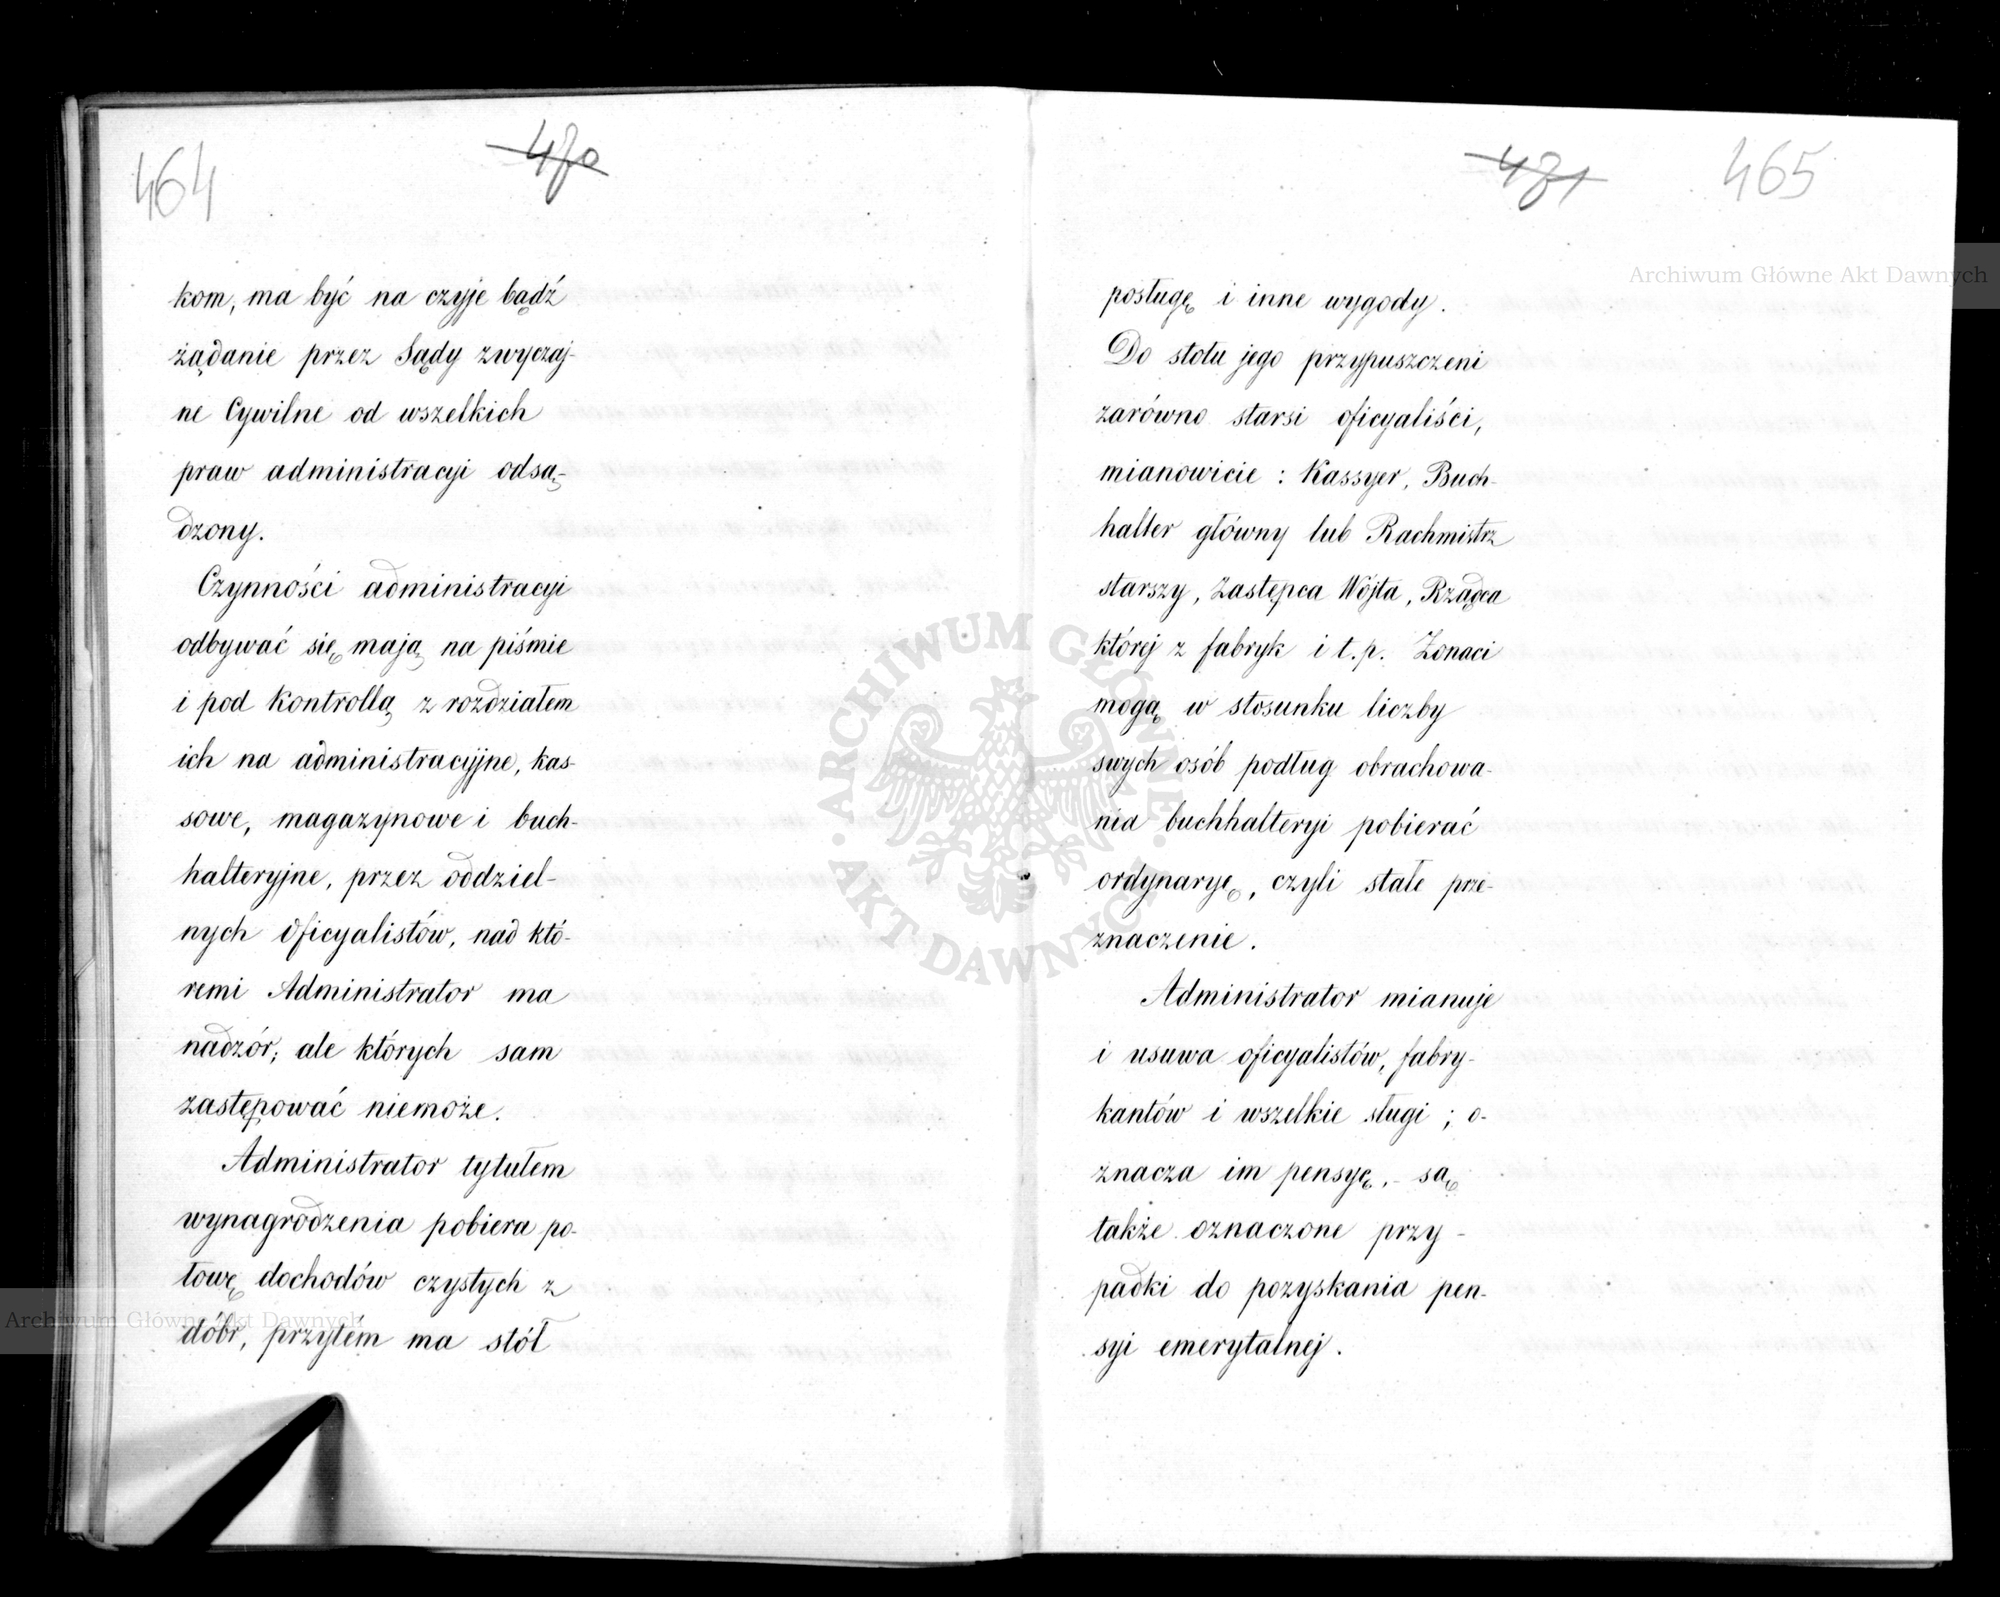 464
470
kom, ma być na czyje bądź
żądanie przez Sądy zwyczaj-
ne Cywilne od wszelkich
praw administracyi odsą-
dzony.
Czynności administracyi
odbywać się mają na piśmie
i pod kontrollą z rozdziałem
ich na administracyjne, kas-
sowe, magazynowe i buch-
halteryjne, przez oddziel-
nych oficyalistów, nad któ-
remi Administrator ma
nadzór; ale których sam
zastępować niemoże.
Administrator tytułem
wynagrodzenia pobiera po-
łowę dochodów czystych z
dóbr, przytem ma stół
Archiwum Główne Akt Dawnych
471
465
Archiwum Główne Akt Dawnych
posługę i inne wygody.
Do stołu jego przypuszczeni
zarówno starsi oficyaliści,
mianowicie: Kassyer, Buch-
halter główny lub Rachmistrz
starszy, Zastępca Wójta, Rządca
której z fabryk i t.p. Żonaci
mogą w stosunku liczby
swych osób podług obrachowa-
nia buchhalteryi pobierać
ordynaryę, czyli stałe prze-
znaczenie.
Administrator mianuje
i usuwa oficyalistów, fabry-
kantów i wszelkie sługi; o-
znacza im pensyę, - są
także oznaczone przy-
padki do pozyskania pen-
syi emerytalnej.
ARCHIWUM GŁÓWNE · AKT DAWNYCH ·